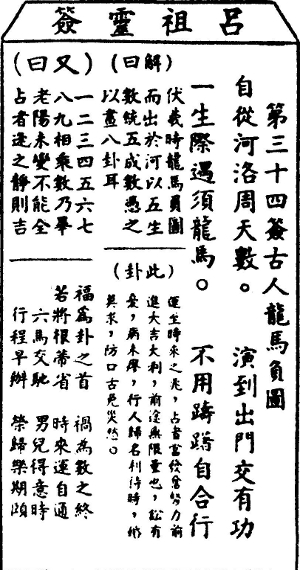 呂祖靈簽
第三十四簽古人龍馬負圖
自從河洛周天數。 演到出門交有功
一生際遇須龍馬。 不用躊躇自合行
(解曰)
伏羲時龍馬負圖
而出於河以五生
數統五成數憑之
以畫八卦耳
(此卦)
運至時來之兆,占者當發奮努力前
進大吉大利,前途無限量也,訟有
憂,病未瘳,行人歸名利待時,
莫求,防口舌免災愆。
(又曰)
一二三四五六七
八九相乘數乃畢
老陽未變不能全
占者逢之靜則吉
福為卦之首 禍為數之終
若將根蒂省 時來運自通
六馬交馳 男兒得意時
行程早辦 榮歸樂期頤